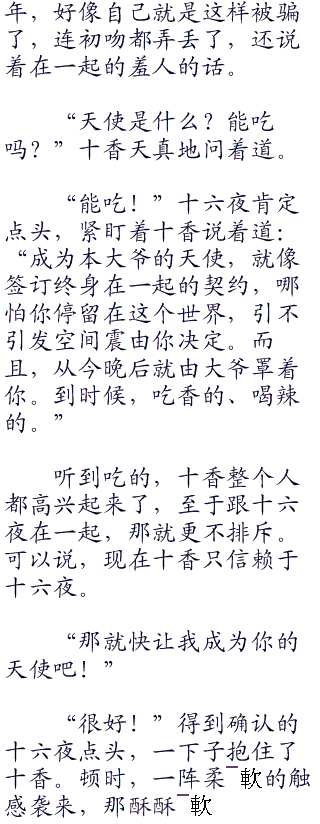 年，好像自己就是这样被骗
了，连初吻都弄丢了，还说
着在一起的羞人的话。
“天使是什么？能吃
吗？”十香天真地问着道。
“能吃！”十六夜肯定
点头，紧盯着十香说着道：
“成为本大爷的天使，就像
签订终身在一起的契约，哪
怕你停留在这个世界，引不
引发空间震由你决定。而
且，从今晚后就由大爷罩着
你。到时候，吃香的、喝辣
的。”
听到吃的，十香整个人
都高兴起来了，至于跟十六
夜在一起，那就更不排斥。
可以说，现在十香只信赖于
十六夜。
“那就快让我成为你的
天使吧！”
“很好！”得到确认的
十六夜点头，一下子抱住了
十香。顿时，一阵柔¯軟的触
感袭来，那酥酥¯軟